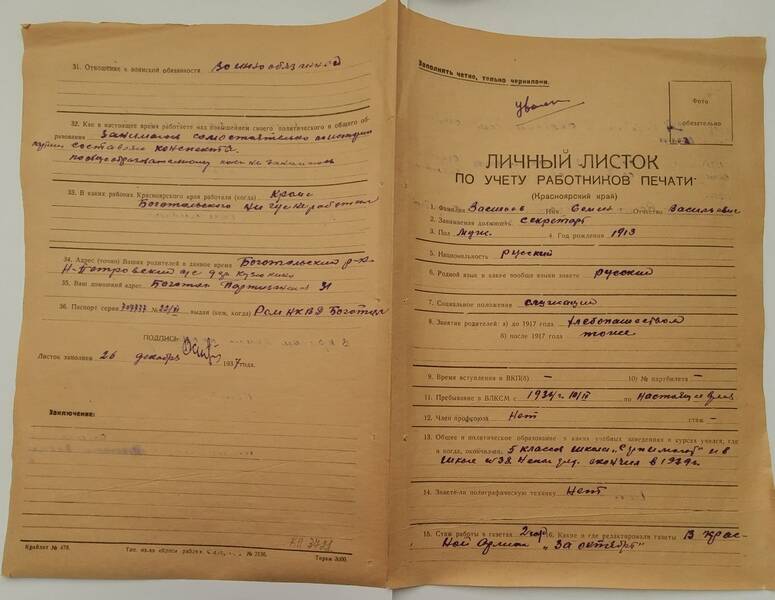 31. Отношение к воинской обязанности Военнообязанной
32. Как в настоящее время работаете над повышением своего политического и общего об-
разования Занимаюсь самостоятельно
составляю конспекта.
по общеобразовательному пока не занимаюсь
33. В каких районах Красноярского края работали (когда) Кроме
Боготольского нигде не работал
34. Адрес (точно) Ваших родителей в данное время Боготольский р-он
Н-Петровский с/с дер. Кузюкино
35. Ваш домашний адрес: Боготол Партизанская 31
36. Паспорт серия № 22/VI выдан (кем, когда) Ром НКВД Боготол
ПОДПИСЬ
Листок заполнен „ 26 декабря 1937 года.
Заключение:
Крайлит № 478.
Тираж 3000.
КП 3798
Заполнять четко, только чернилами.
Фото
обязательно
ЛИЧНЫЙ ЛИСТОК
ПО УЧЕТУ РАБОТНИКОВ ПЕЧАТИ
(Красноярский край)
1. Фамилия Имя Семен Отчество Васильевич
2. Занимаемая должность секретарь
3. Пол Муж. 4. Год рождения 1913
5. Национальность русский
6. Родной язык и какие вообще языки знаете русский
7. Социальное положение служащий
8. Занятия родителей: а) до 1917 года Хлебопашеством
б) после 1917 года тоже
9. Время вступления в ВКП(б) – 10) № партбилета –
11. Пребывание в ВЛКСМ с 1934 г. 10/II по настоящее время
12. Член профсоюза Нет стаж –
13. Общее и политическое образование в каких учебных заведениях и курсах учился, где
и когда, окончания. 5 классов школы и в
школе № 38 окончил в 1929 г.
14. Знаете ли полиграфическую технику Нет
15. Стаж работы в газетах 2 года 16. Какие и где редактировали газеты В Крас-
ной Армии „За октябрь"